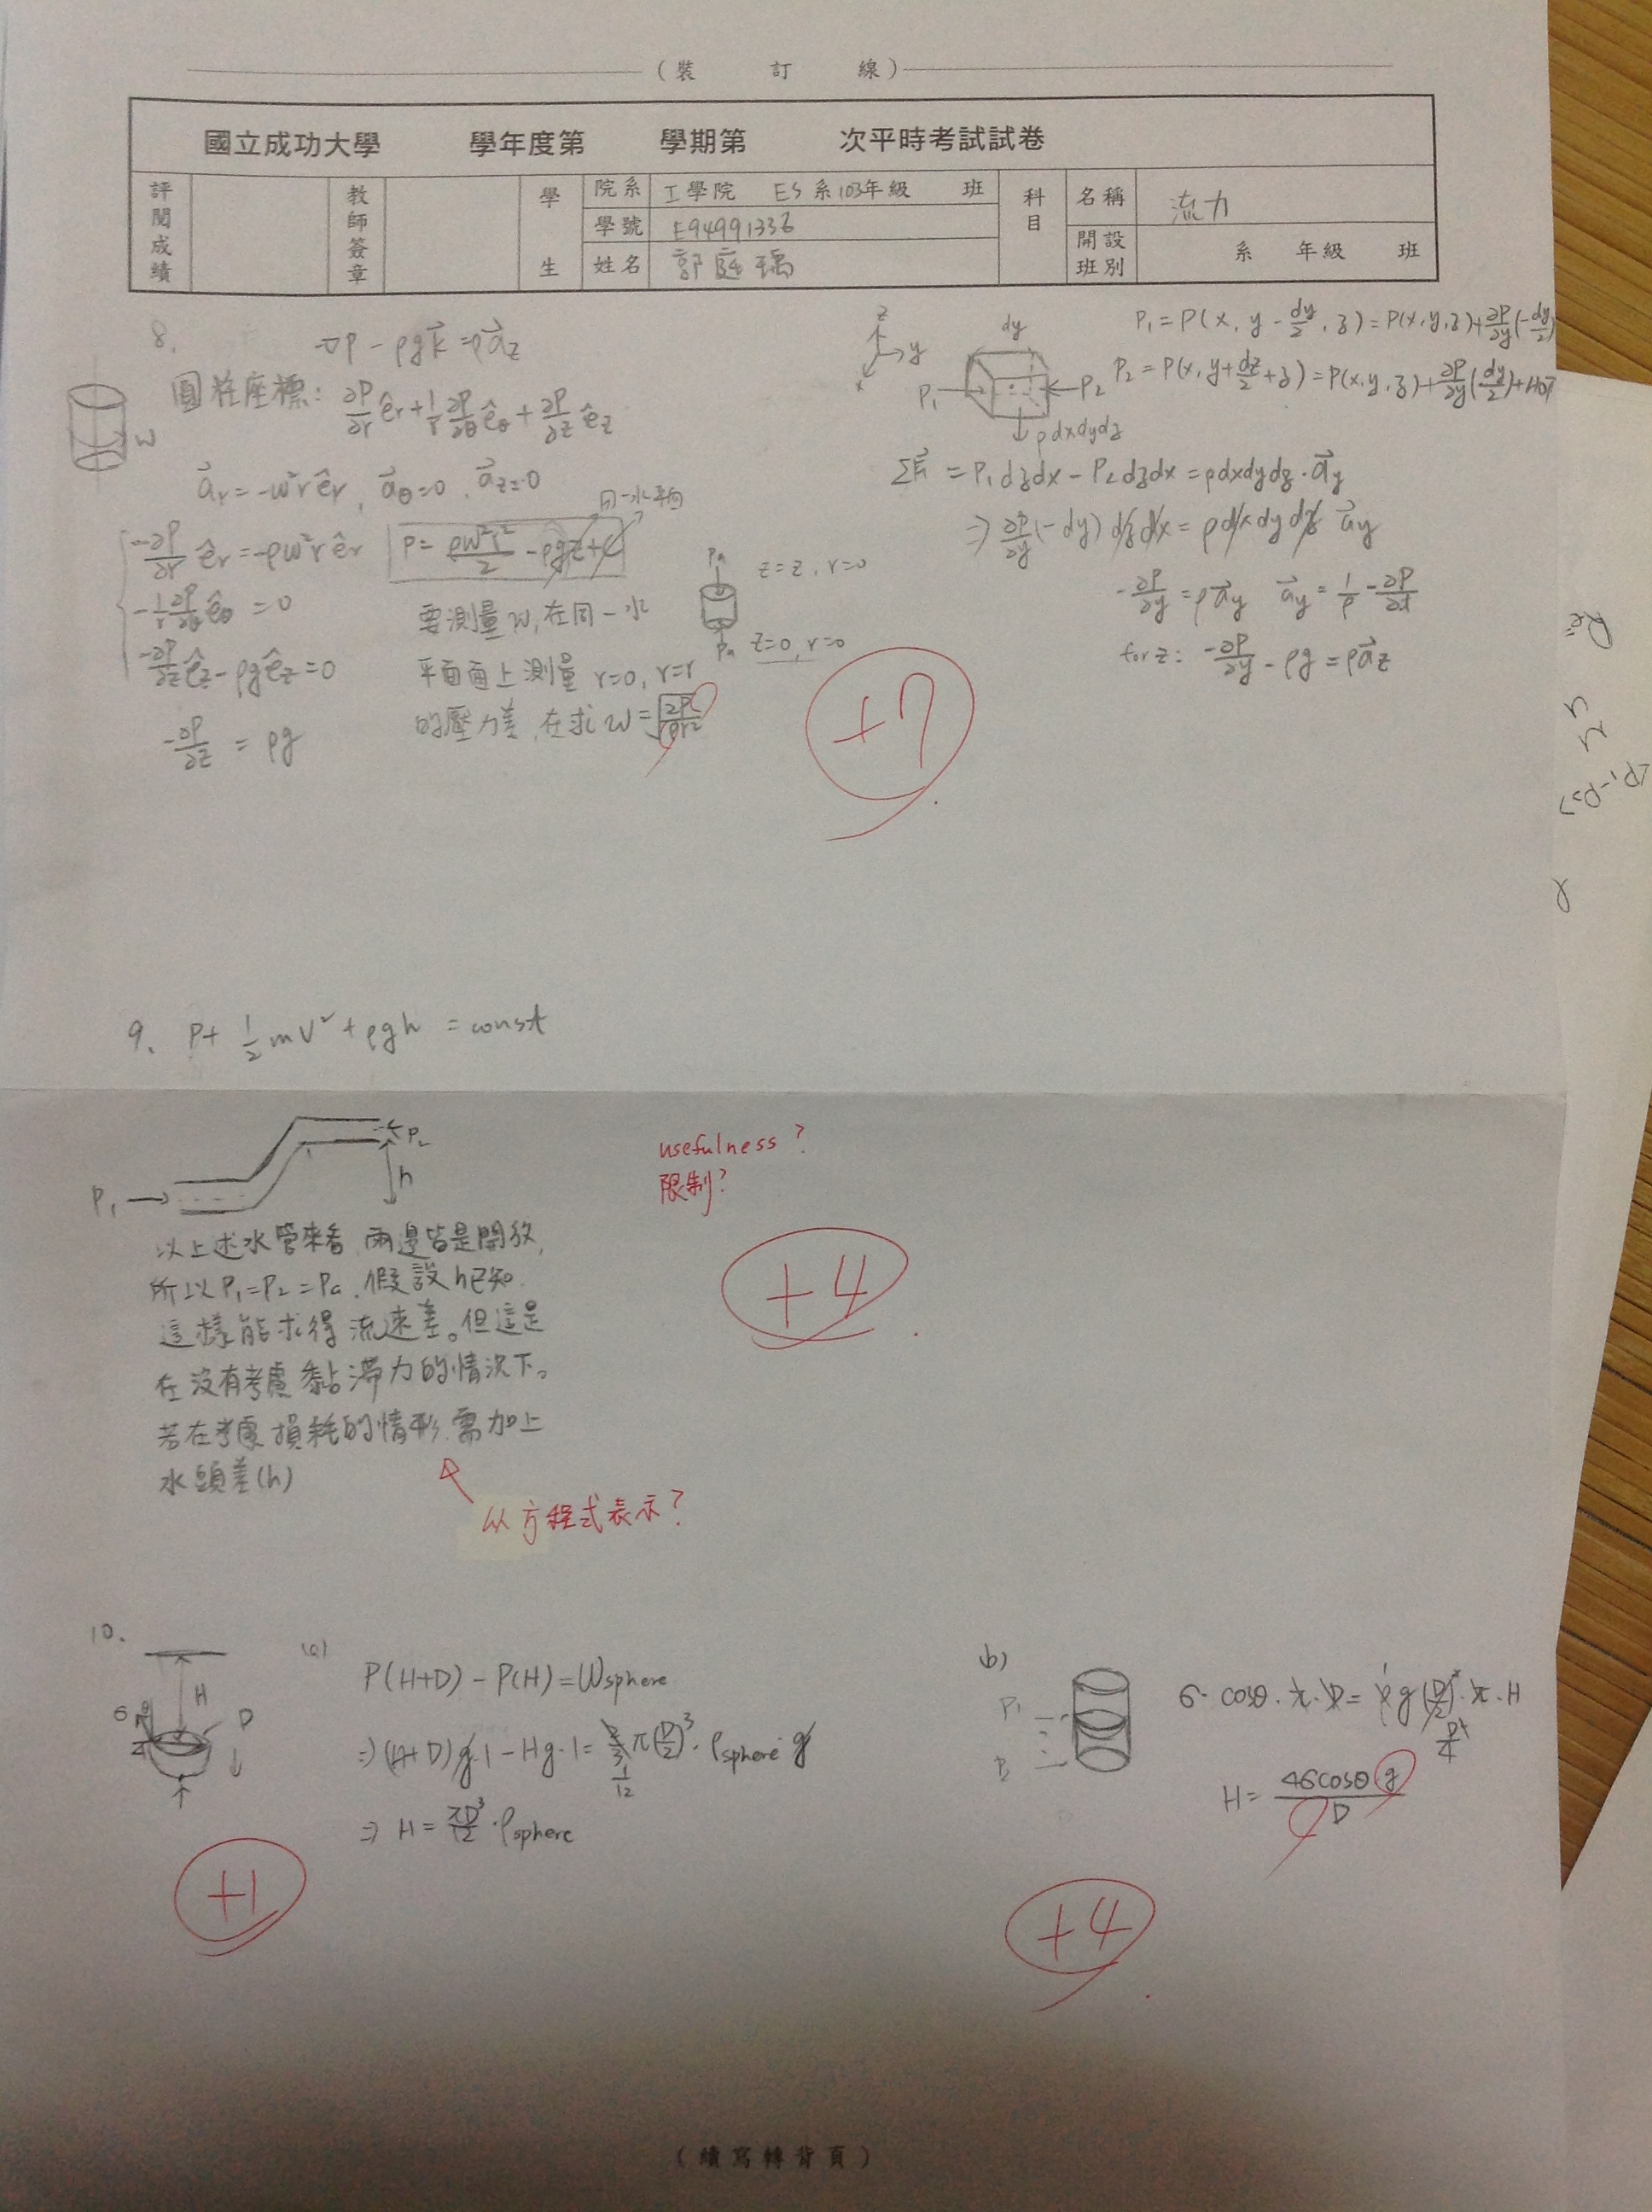 (裝 訂 線)
國立成功大學 學年度第 學期第 次平時考試試卷
評閱成績
教師簽章
學生
院系 工學院 ES系103年級 班
學號 E94991336
姓名 郭庭瑀
科目
名稱 流力
開設班別 系 年級 班
8. -∇P - ρgk⃗ = ρa⃗z
圓柱座標: ∂P/∂r êr + 1/r ∂P/∂θ êθ + ∂P/∂z êz
w
a⃗r = -w²r êr, a⃗θ = 0, a⃗z = 0
-∂P/∂r êr = -ρw²r êr
-1/r ∂P/∂θ êθ = 0
-∂P/∂z êz - ρg êz = 0
-∂P/∂z = ρg
同一水平面
P = ρw²r²/2 - ρgz + C
要測量w, 在同一水
平面面上測量 r=0, r=r
的壓力差, 在求 w = √(2P/ρr²)
Pa
z=z, r=0
Pa z=0, r=0
+7
z
y
x
dy
P1
P2
ρdxdydz
P1 = P(x, y - dy/2, z) = P(x,y,z) + ∂P/∂y(-dy/2)
P2 = P(x, y + dz/2 + z) = P(x,y,z) + ∂P/∂y(dy/2) + HOT
ΣF⃗ = P1dzdx - P2dzdx = ρdxdydz·a⃗y
⇒ ∂P/∂y(-dy)dzdx = ρdxdydz a⃗y
-∂P/∂y = ρa⃗y a⃗y = 1/ρ -∂P/∂t
for z: -∂P/∂y - ρg = ρa⃗z
Re=
(P1-P2)
9. P + 1/2 mV² + ρgh = const
P1
P2
h
以上述水管來看, 兩邊皆是開放,
所以P1=P2=Pa, 假設h已知.
這樣能求得 流速差。但這是
在沒有考慮黏滯力的情況下。
若在考慮損耗的情形, 需加上
水頭差(h)
usefulness?
限制?
+4
以方程式表示?
10.
H
D
σ
(a)
P(H+D) - P(H) = Wsphere
⇒ (H+D)g·1 - Hg·1 = 2/3 π(D/2)³·ρsphere g
1/12
⇒ H = πD³/12 · ρsphere
+1
b)
P1
P2
σ·cosθ·π·D = ρg(D/2)²·π·H
D²/4
H = 4σcosθ g / D
+4
(續寫轉背頁)